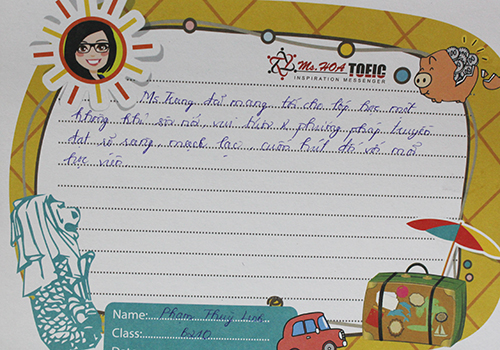 Ms.HOA TOEIC
INSPIRATION MESSENGER
Ms.Trang đã mang tới cho lớp học một
không khí sôi nổi, vui tươi & phương pháp truyền
đạt rõ ràng, mạch lạc, cuốn hút đối với mỗi
học viên.
Name: Phạm Thuỳ Linh
Class: